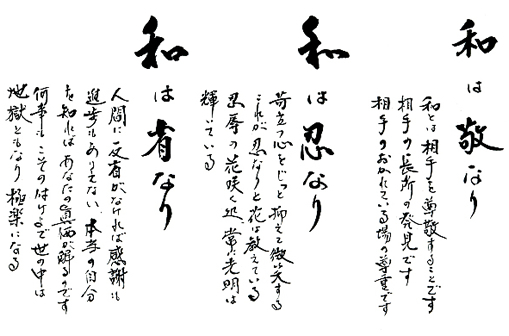 和は敬なり
和とは相手を尊敬することです
相手の長所の発見です
相手のおかれている場の尊重です
和は忍なり
苛立つ心をじっと抑えて微笑する
これが忍なりと花は教えている
忍辱の花咲く処常に光明は
輝いている
和は省なり
人間に反省がなければ感謝も
進歩もありえない、本当の自分
を知ればあなたの真価が解るのです
何事も こころの付けようで世の中は
地獄ともなり 極楽になる